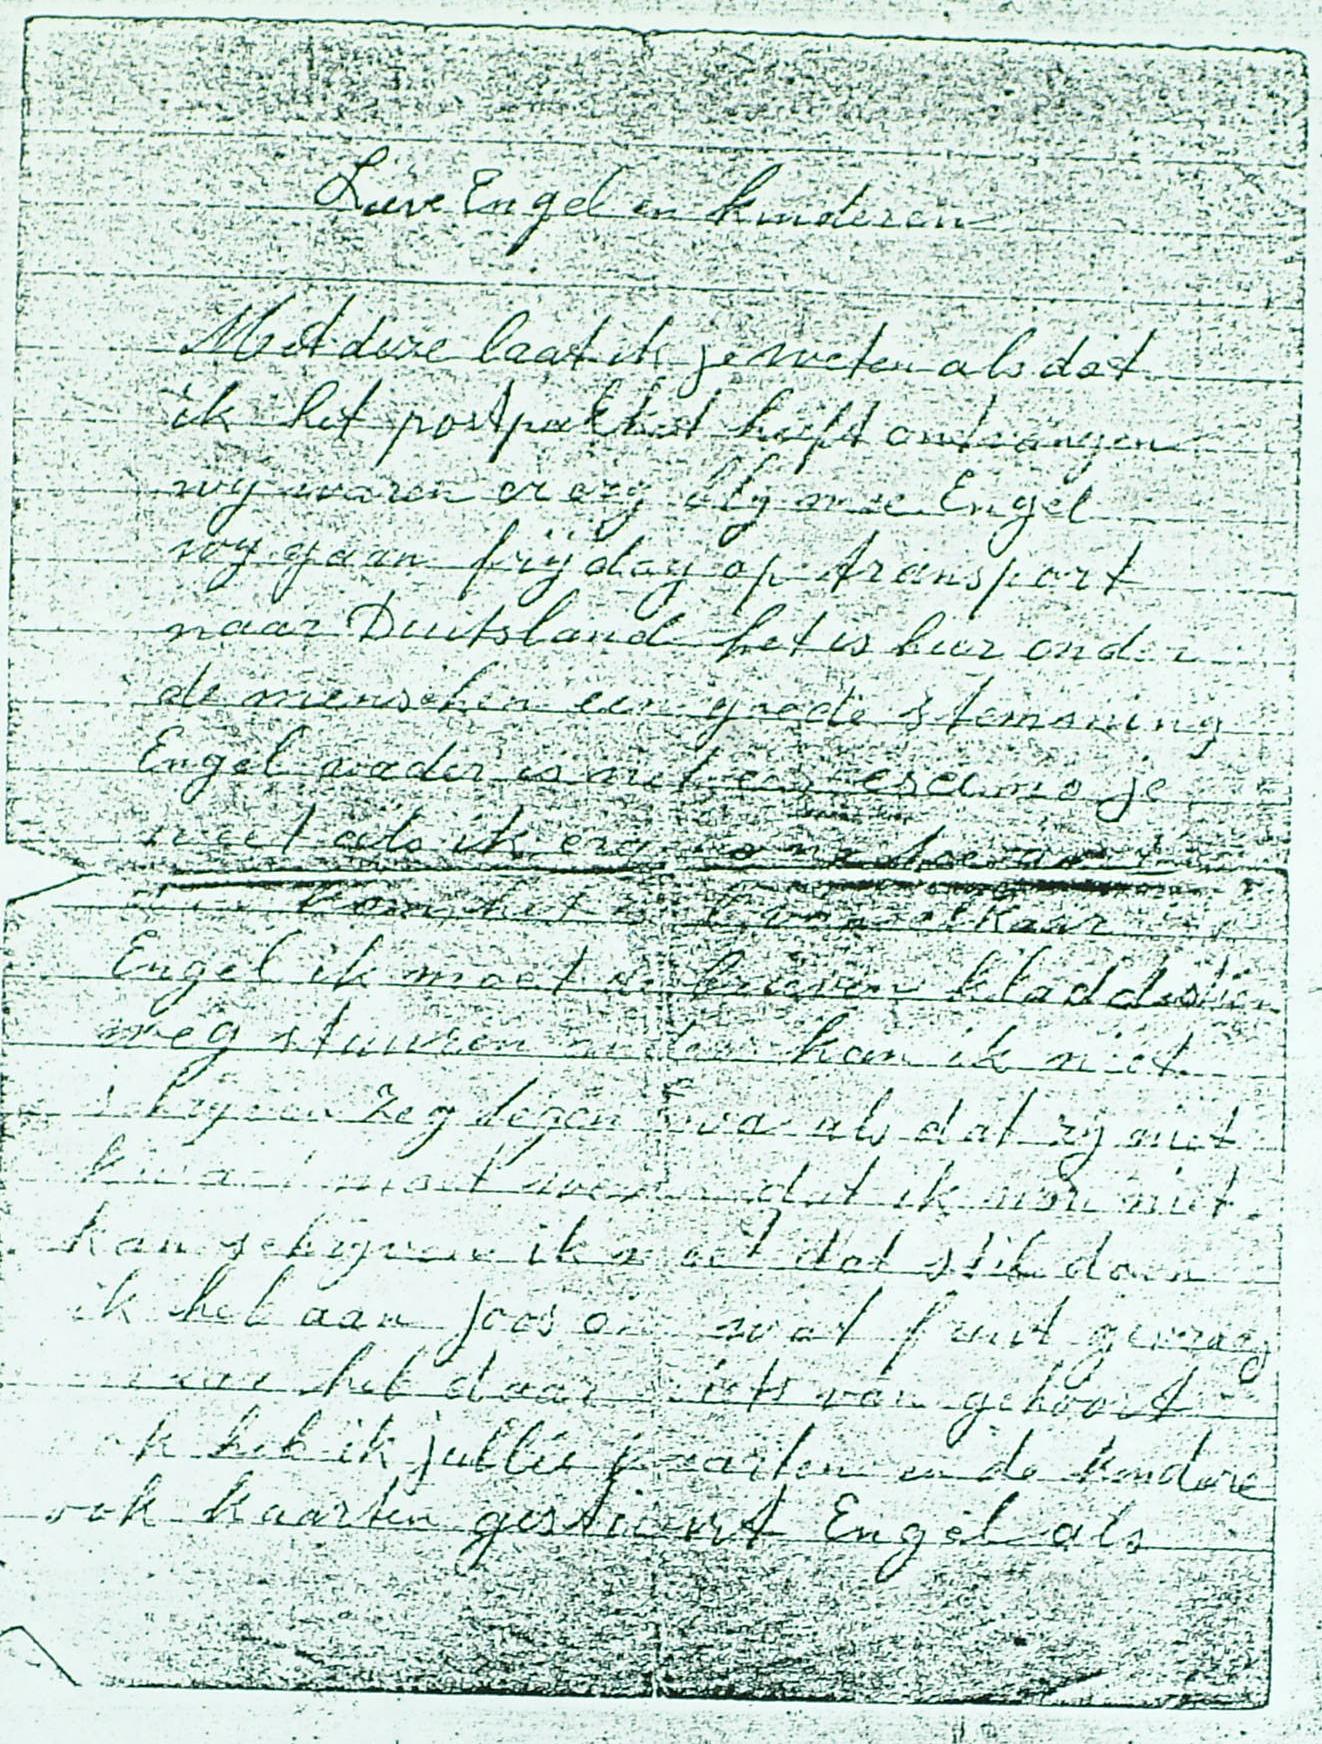 Lieve Engel en kinderen
Met deze laat ik je weten als dat
ik het postpakket heeft ontvangen
wij waren er erg blij mee Engel
wij gaan frijdag op transport
naar Duitsland het is hier onder
de menschen een goede stemming
Engel vader is niet je
weet als ik erg
kom het elkaar
Engel ik moet de brieven kladdistien
weg stuuren kan ik niet
schrijven zeg tegen Eva als dat zij niet
kwaad moet dat ik niet
kan schrijven ik moet dat stil doen
ik heb aan Joos om wat fruit gevraag
maar heb daar niets van gehoort
ook heb ik jullie kaarten en de kindere
ook kaarten gestuurt Engel als